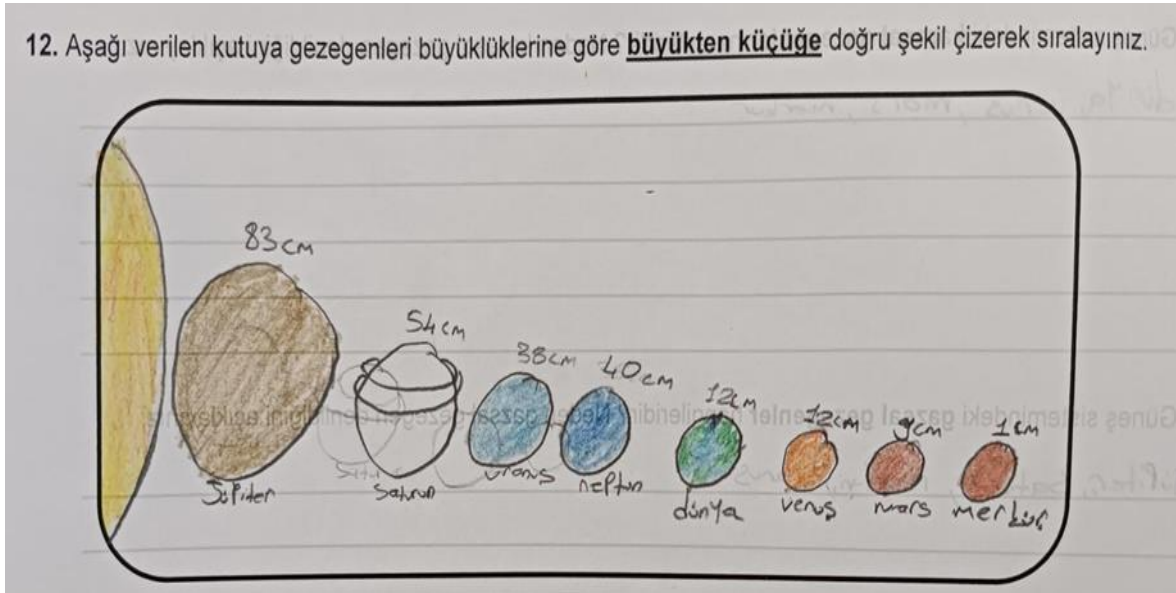 12. Aşağı verilen kutuya gezegenleri büyüklüklerine göre büyükten küçüğe doğru şekil çizerek sıralayınız.
83cm
54cm
38cm 40cm
12cm 12cm 9cm 1cm
Jüpiter Saturun Uranüs neptün
dünya venüş mars merkür